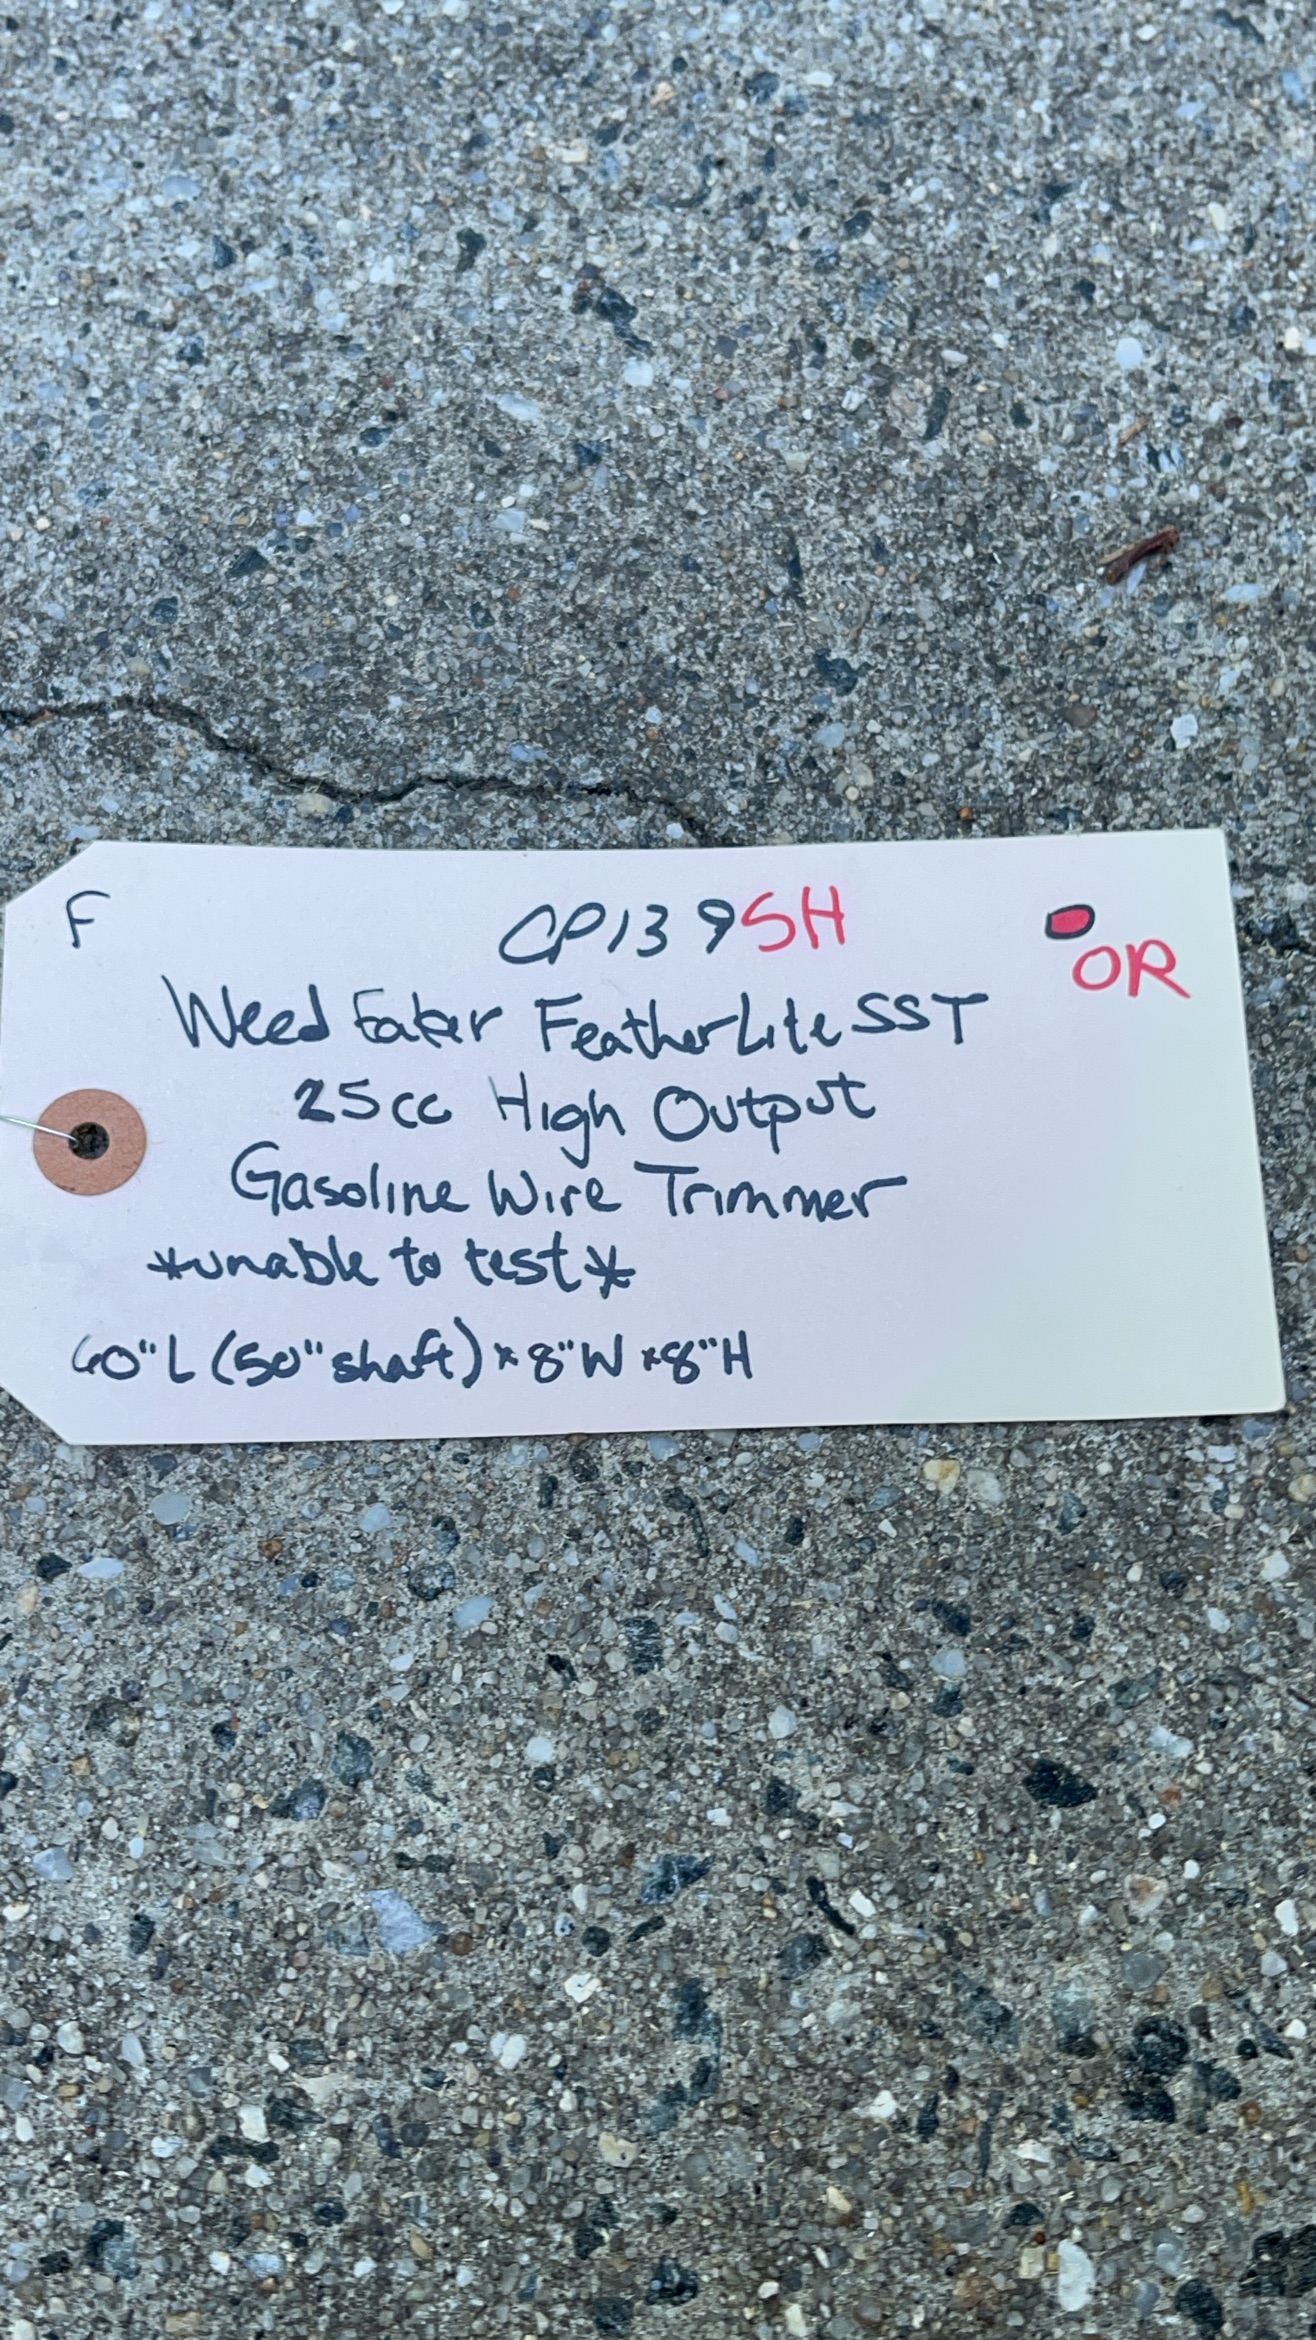 F CP139SH
OR
Weed Eater FeatherLite SST
25cc High Output
Gasoline Wire Trimmer
*unable to test*
60"L (50" shaft) x 8"W x 8"H